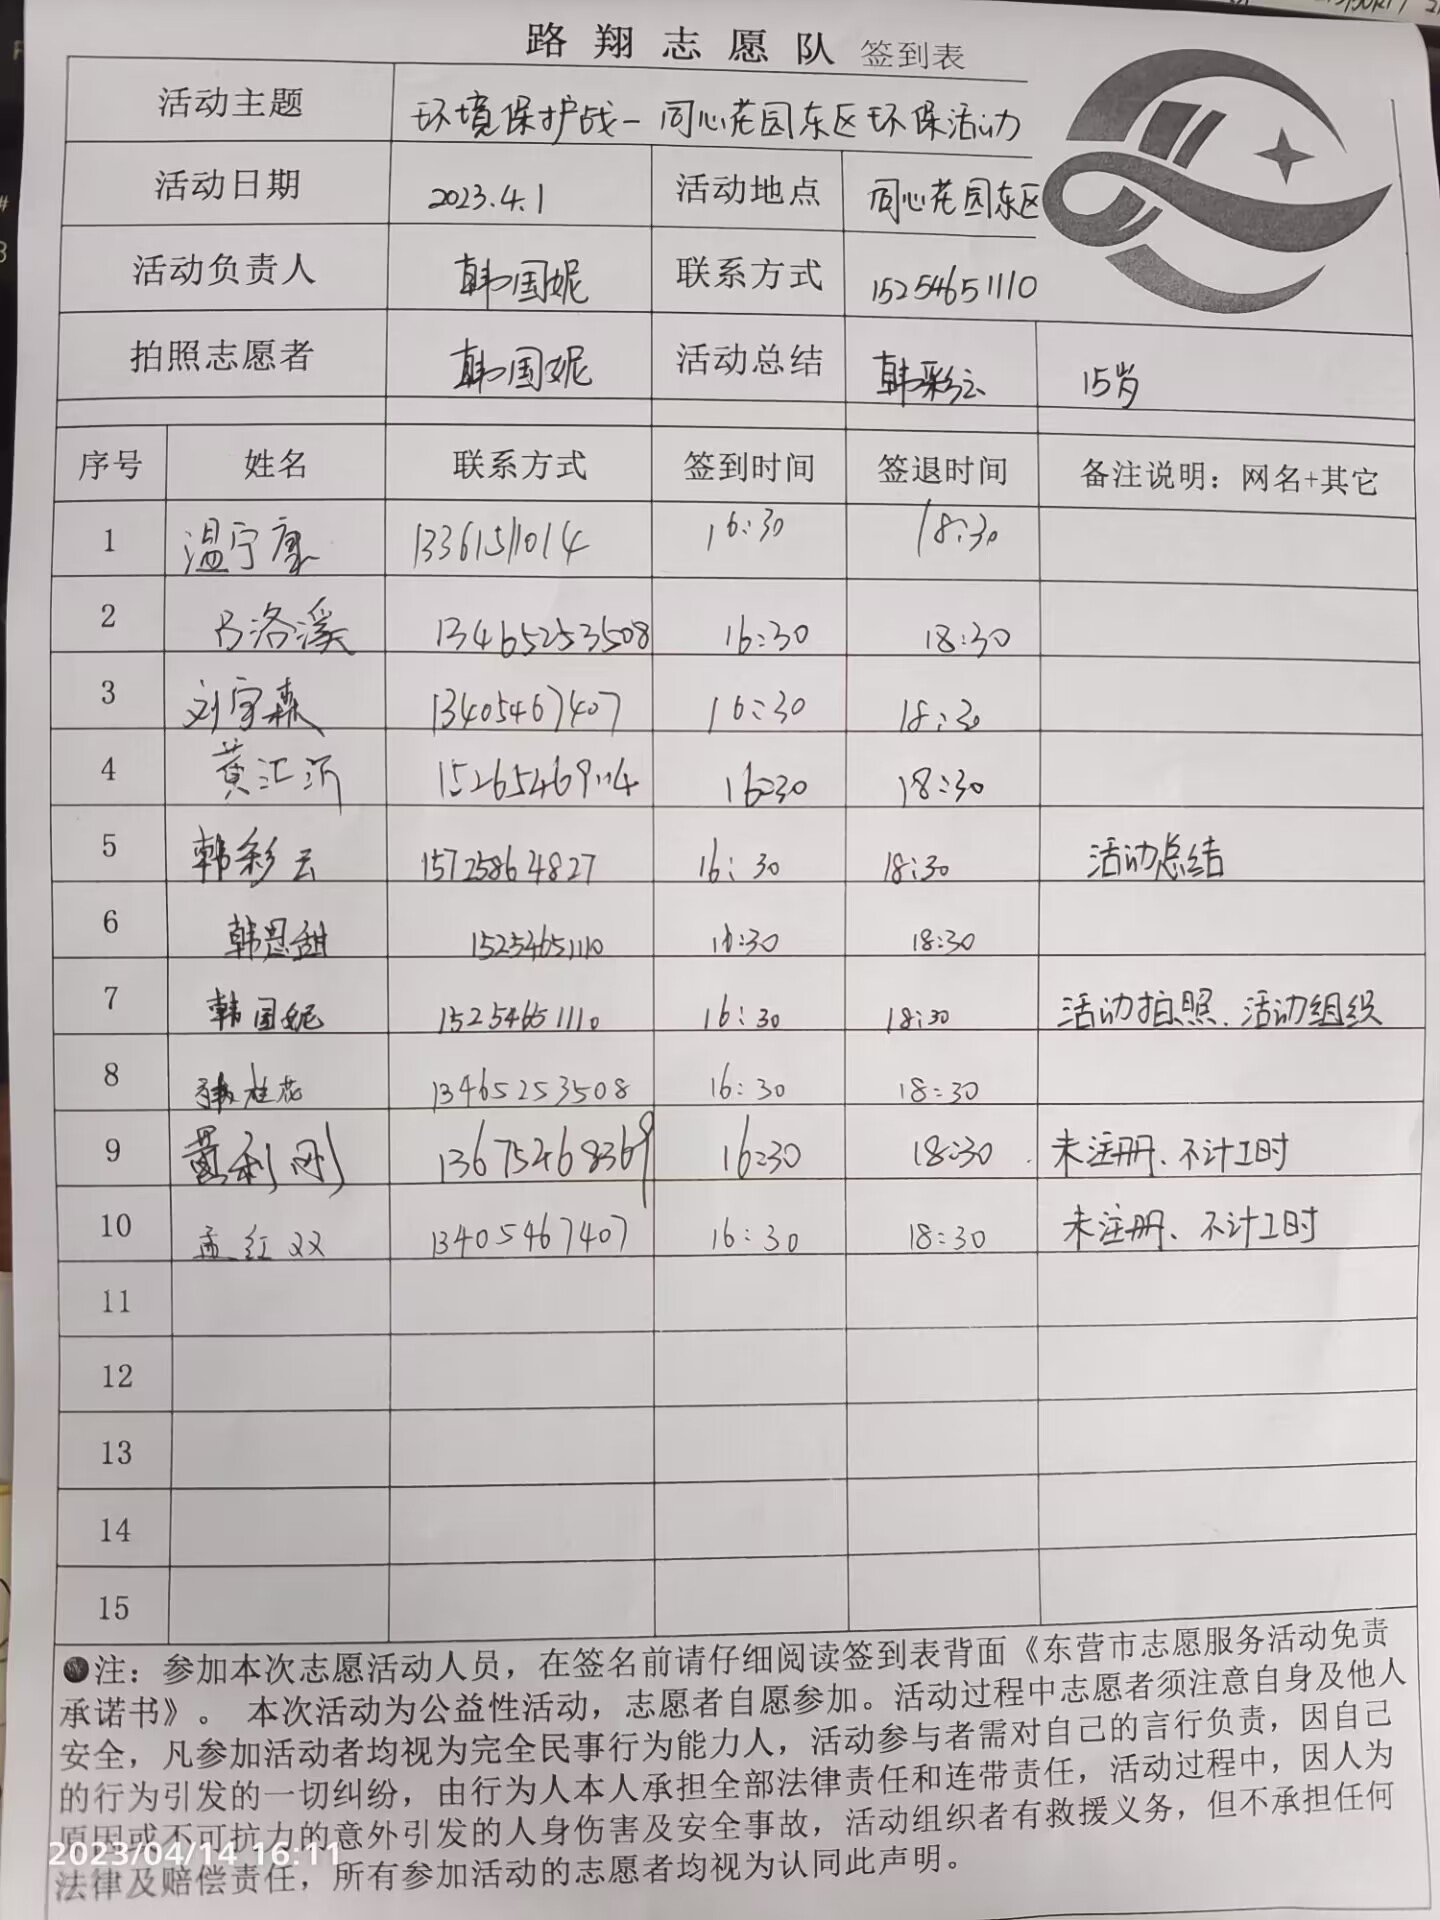 路翔志愿队 签到表
活动主题 环境保护战－同心花园东区环保活动
活动日期 2023.4.1 活动地点 同心花园东区
活动负责人 韩国妮 联系方式 15254651110
拍照志愿者 韩国妮 活动总结 韩彩云 15岁
序号 姓名 联系方式 签到时间 签退时间 备注说明：网名+其它
1 温宁康 13361511014 16:30 18:30
2 洛溪 13465253508 16:30 18:30
3 刘宇森 13405467407 16:30 18:30
4 黄汇沂 15265469114 16:30 18:30
5 韩彩云 15725864827 16:30 18:30 活动总结
6 韩思甜 15254651110 16:30 18:30
7 韩国妮 15254651110 16:30 18:30 活动拍照、活动组织
8 桂花 13465253508 16:30 18:30
9 黄利刚 13675468369 16:30 18:30 未注册、不计工时
10 孟红双 13405467407 16:30 18:30 未注册、不计工时
11
12
13
14
15
●注：参加本次志愿活动人员，在签名前请仔细阅读签到表背面《东营市志愿服务活动免责
承诺书》。 本次活动为公益性活动，志愿者自愿参加。活动过程中志愿者须注意自身及他人
安全，凡参加活动者均视为完全民事行为能力人，活动参与者需对自己的言行负责，因自己
的行为引发的一切纠纷，由行为人本人承担全部法律责任和连带责任，活动过程中，因人为
原因或不可抗力的意外引发的人身伤害及安全事故，活动组织者有救援义务，但不承担任何
法律及赔偿责任，所有参加活动的志愿者均视为认同此声明。
2023/04/14 16:11